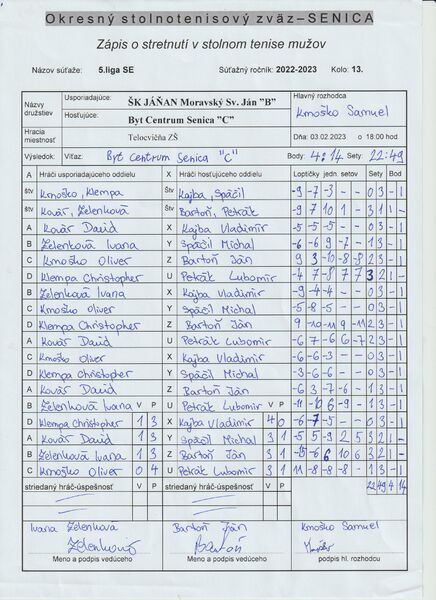 Okresný stolnotenisový zväz – SENICA
Zápis o stretnutí v stolnom tenise mužov
Názov súťaže: 5.liga SE Súťažný ročník: 2022-2023 Kolo: 13.
Názvy družstiev Usporiadajúce: ŠK JÁŇAN Moravský Sv. Ján "B" Hlavný rozhodca
Hosťujúce: Byt Centrum Senica "C" Kmoško Samuel
Hracia miestnosť Telocvičňa ZŠ Dňa: 03.02.2023 o 18:00 hod
Výsledok: Víťaz: Byt Centrum Senica "C" Body: 4:14 Sety: 22:49
A Hráči usporiadajúceho oddielu X Hráči hosťujúceho oddielu Loptičky jedn. setov Sety Bod
štv Kmoško, Klempa Štv Kajba, Spáčil -9 -7 -3 - - 0 3 - 1
štv Kovár, Zelenková Štv Bartoň, Petrák
A Kovár David X Kajba Vladimír -5 -5 -5 - - 0 3 - 1
B Zelenková Ivana Y Spáčil Michal -6 -6 9 -7 - 1 3 - 1
C Kmoško Oliver Z Bartoň Ján 9 3 -10 -8 -8 2 3 - 1
D Klempa Christopher U Petrák Lubomír -4 7 -8 7 7 3 2 1 -
B Zelenková Ivana X Kajba Vladimír -9 -4 -4 - - 0 3 - 1
C Kmoško Oliver Y Spáčil Michal -5 -8 -5 - - 0 3 - 1
D Klempa Christopher Z Bartoň Ján 9 -10 -11 9 -11 2 3 - 1
A Kovár David U Petrák Lubomír
C Kmoško Oliver X Kajba Vladimír -6 -6 -3 - - 0 3 - 1
D Klempa Christopher Y Spáčil Michal -3 -6 -6 - - 0 3 - 1
A Kovár David Z Bartoň Ján -6 3 -7 -6 - 1 3 - 1
B Zelenková Ivana V P U Petrák Lubomír V P -11 -10 6 -9 - 1 3 - 1
D Klempa Christopher 1 3 X Kajba Vladimír 4 0 -6 -7 -5 - - 0 3 - 1
A Kovár David 1 3 Y Spáčil Michal 3 1 -5 5 -9 2 5 3 2 1 -
B Zelenková Ivana 1 3 Z Bartoň Ján 3 1
C Kmoško Oliver 0 4 U Petrák Lubomír 3 1 11 -8 -8 -8 - 1 3 - 1
striedaný hráč-úspešnosť striedaný hráč-úspešnosť 22 49 4 14
Ivana Zelenková Bartoň Ján Kmoško Samuel
Zelenková Bartoň
Meno a podpis vedúceho Meno a podpis vedúceho podpis hl. rozhodcu